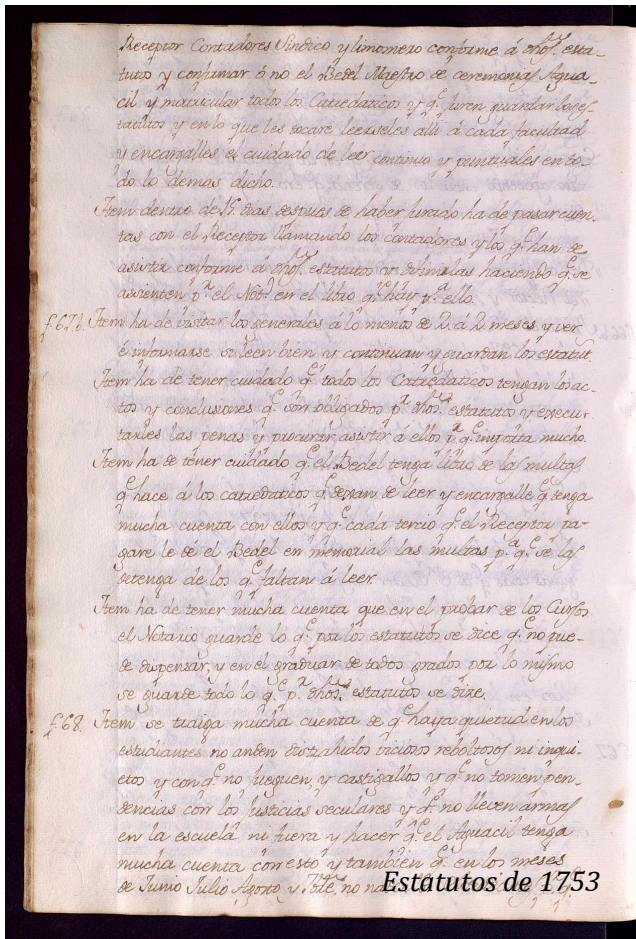 Receptor Contadores Sindico y limosnero conforme á dhos. esta-
tutos y confirmar ó no el Bedel Maestro de ceremonias Agua-
cil y matricular todos los Catredaticos y q.e juren guardar los es-
tatutos y en lo que les tocare leerseles alli á cada facultad
y encargalles el cuidado de leer continuo y puntuales en to-
do lo demas dicho.
Item dentro de 15. dias despues de haber jurado ha de pasar cuen-
tas con el Receptor llamando los contadores y los q.e han de
asistir conforme á dhos. estatutos y difinirlas haciendo q.e se
assienten p.r el Not.o en el libro q.e hay p.a ello.
f. 67. b. Item ha de visitar los generales á lo menos de 2. á 2 meses y ver
é informarse si leen bien y continuan y guardan los estatut.
Item ha de tener cuidado q.e todos los Catredaticos tengan los ac-
tos y conclusiones q.e son obligados p.r dhos. estatutos y execu-
tarles las penas y procurar asistir á ello p.r q.e importa mucho.
Item ha de tener cuidado q.e el Bedel tenga libro de las multas
q.e hace á los catredaticos q.e dejan de leer y encargalle q.e tenga
mucha cuenta con ellos y q.e cada tercio q.e el Receptor pa-
gare le dé el Bedel en memorial las multas p.a q.e se las
detenga de los q.e faltan á leer
Item ha de tener mucha cuenta que en el probar de los Cursos
el Notario guarde lo q.e por los estatutos se dice q.e no pue-
de dispensar, y en el graduar de todos grados por lo mismo
se guarde todo lo q.e p.r dhos. estatutos se dize.
f. 68. Item se traiga mucha cuenta de q.e haya quietud en los
estudiantes no anden distrahidos viciosos reboltosos ni inqui-
etos y con q.e no jueguen, y castigallos y q.e no tomen pen-
dencias con los Justicias seculares y q.e no lleven armas
en la escuela ni fuera y hacer q.e el Aguacil tenga
mucha cuenta con esto y tambien q.e en los meses
de Junio Julio Agosto y 7bre. no
Estatutos de 1753